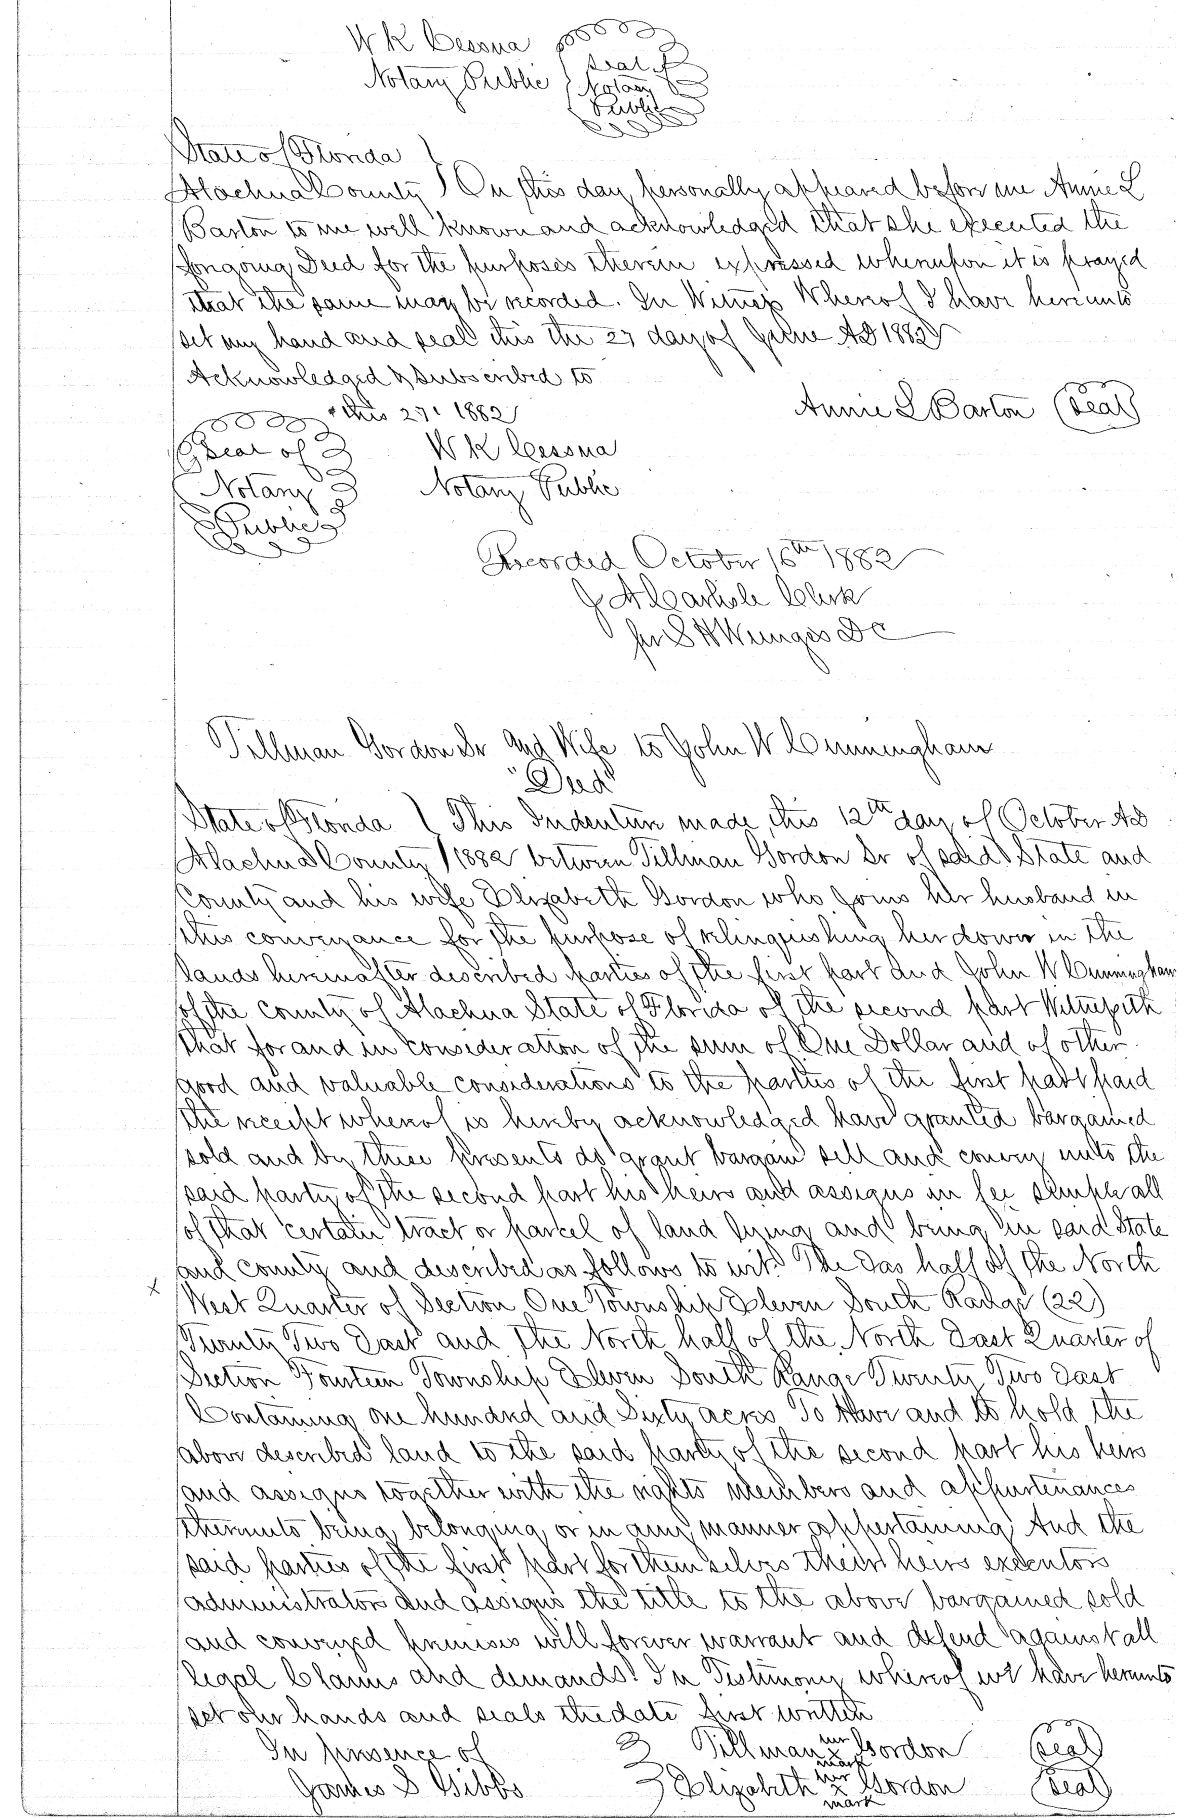 W K Cessna
Notary Public
Seal of
Notary
Public
State of Florida }
Alachua County } On this day personally appeared before me Annie L
Barton to me well known and acknowledged that she executed the
forgoing Deed for the purposes therein expressed whereupon it is prayed
that the same may be recorded. In Witness Whereof I have hereunto
set my hand and seal this the 27 day of June AD 1882
Acknowledged & Subscribed to
this 27. 1882
Annie L Barton (Seal)
Seal of
Notary
Public
W K Cessna
Notary Public
Recorded October 16th 1882
J A Carlisle Clerk
per S H DC
Tillman Gordon Sr and Wife to John W Cunningham
"Deed"
State of Florida } This Indenture made this 12th day of October AD
Alachua County } 1882 between Tillman Gordon Sr of said State and
County and his wife Elizabeth Gordon who joins her husband in
this conveyance for the purpose of relinquishing her dower in the
lands hereinafter described parties of the first part and John W Cunningham
of the County of Alachua State of Florida of the second part Witnesseth
that for and in consideration of the sum of One Dollar and of other
good and valuable considerations to the parties of the first part paid
the receipt whereof is hereby acknowledged have granted bargained
sold and by these presents do grant bargain sell and convey unto the
said party of the second part his heirs and assigns in fee simple all
of that certain tract or parcel of land lying and being in said State
and county and described as follows to wit: The Eas half of the North
x West Quarter of Section One Township Eleven South Range (22)
Twenty Two East and the North half of the North East Quarter of
Section Fourteen Township Eleven South Range Twenty Two East
Containing one hundred and Sixty acres To Have and to hold the
above described land to the said party of the second part his heirs
and assigns together with the rights members and appurtenances
thereunto being belonging or in any manner appertaining And the
said parties of the first part for themselves their heirs executors
administrators and assigns the title to the above bargained sold
and conveyed premises will forever warrant and defend against all
legal Claims and demands. In Testimony whereof we have hereunto
set our hands and seals the date first written
In presence of } Tillman his x mark Gordon (Seal)
James S Gibbs } Elizabeth her x mark Gordon (Seal)